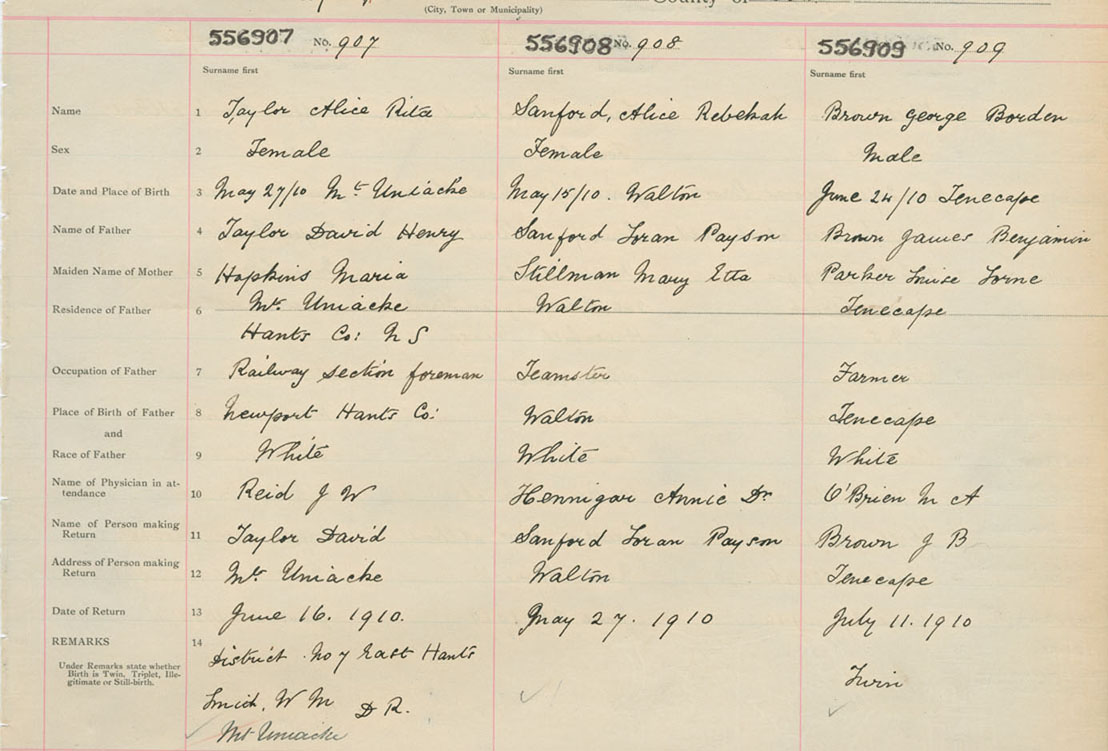 (City, Town or Municipality)
556907 No. 907 556908 No. 908 556909 No. 909
Surname first Surname first Surname first
Name 1 Taylor Alice Rita Sanford, Alice Rebekah Brown George Borden
Sex 2 Female Female Male
Date and Place of Birth 3 May 27/10 Mt Uniacke May 15/10. Walton June 24/10 Tenecape
Name of Father 4 Taylor David Henry Sanford Loran Payson Brown James Benjamin
Maiden Name of Mother 5 Hopkins Maria Stillman Mary Etta Parker Louise Lorne
Residence of Father 6 Mt. Uniacke Walton Tenecape
Hants Co: N S
Occupation of Father 7 Railway section foreman Teamster Farmer
Place of Birth of Father 8 Newport Hants Co: Walton Tenecape
and
Race of Father 9 White White White
Name of Physician in at-
tendance 10 Reid J W Hennigar Annie Dr O'Brien M A
Name of Person making
Return 11 Taylor David Sanford Loran Payson Brown J B
Address of Person making
Return 12 Mt. Uniacke Walton Tenecape
Date of Return 13 June 16. 1910. May 27. 1910 July 11. 1910
REMARKS 14
District No 7 East Hants
Under Remarks state whether
Birth is Twin. Triplet, Ille-
gitimate or Still-birth.
Twin
W M D R.
Mt Uniacke